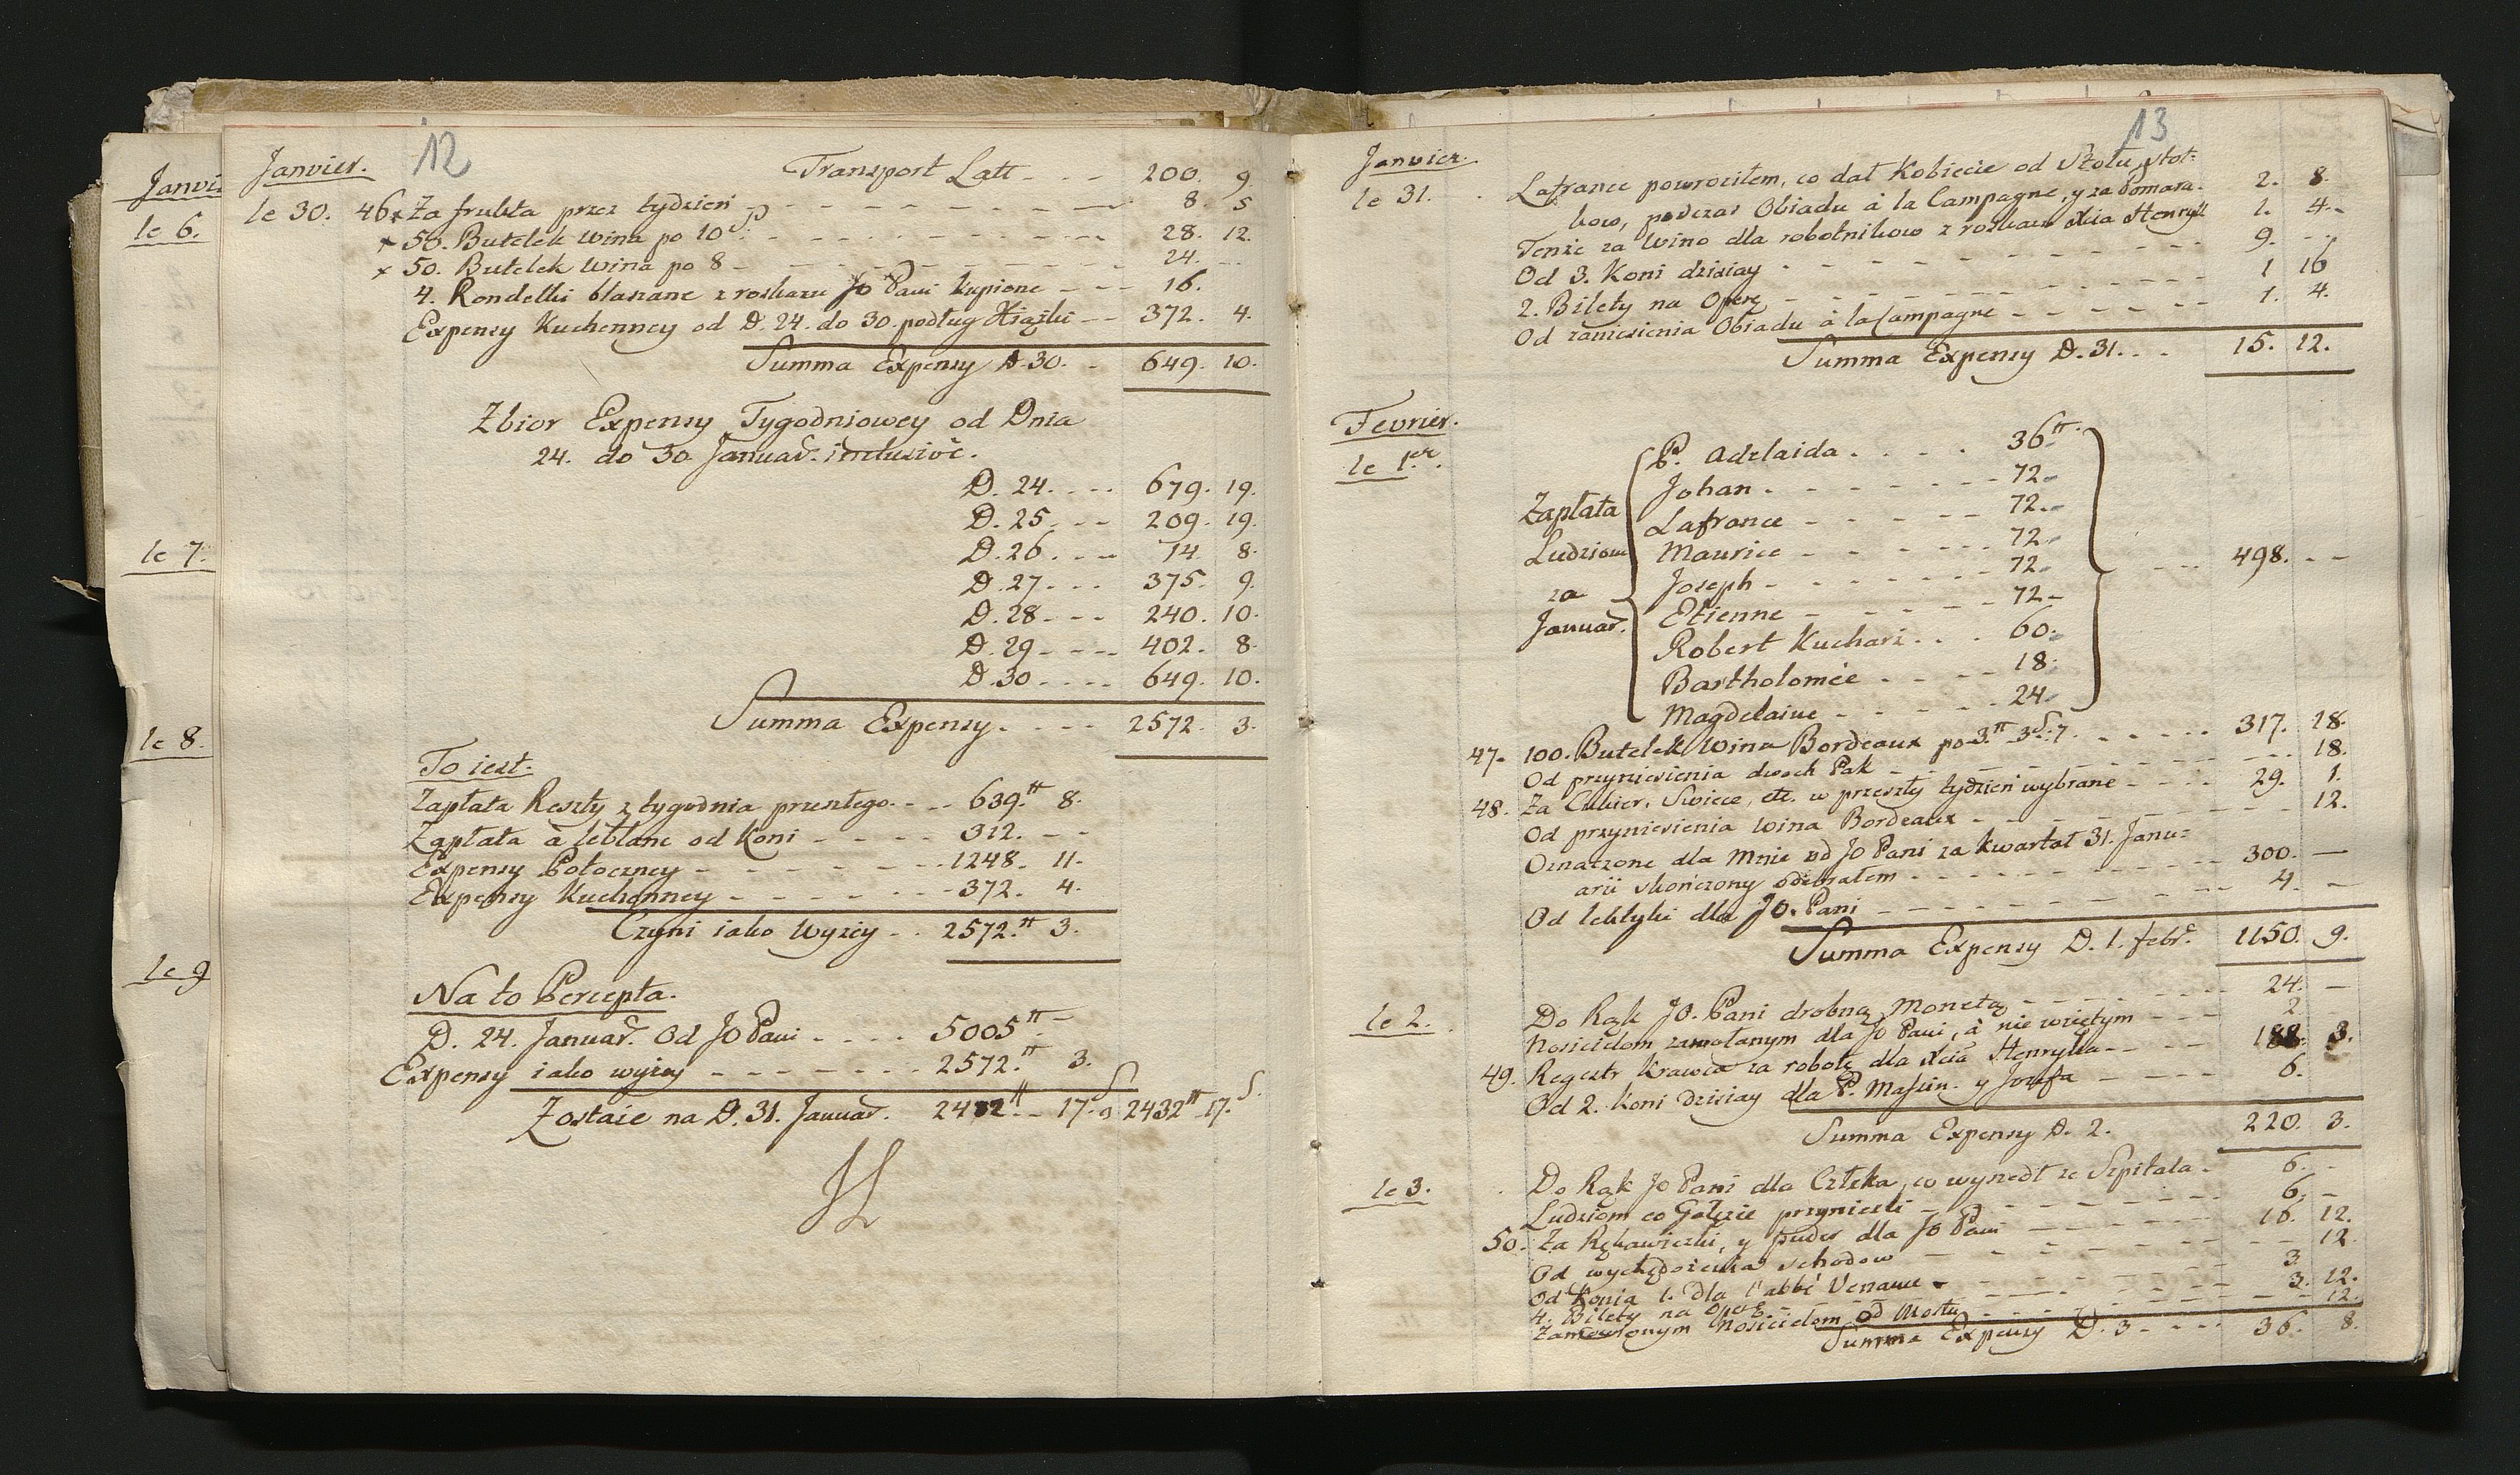 Janvi
le 6.
le 7.
le 8.
le 9
12
Janvier. Transport Latt - - - 200. 9.
le 30. 46 x Za frukta przez tydzień - - - 8. 5
x 50. Butelek Wina po 10 - - - 28. 12.
x 50. Butelek Wina po 8 - - - 24. - -
4. Rondelki blaszane z roskazu JO Pani kupione - - - 16.
Expensy Kuchenney od D. 24. do 30. podług Xiążki - - 372. 4.
Summa Expensy D. 30. - 649. 10.
Zbior Expensy Tygodniowey od Dnia
24. do 30. Januar. inclusivè.
D. 24. - - - 679. 19.
D. 25 - - - 209. 19.
D. 26. - - - 14 8.
D. 27. - - - 375. 9.
D. 28 - - - 240. 10.
D. 29 - - - 402. 8.
D. 30 - - - 649. 10.
Summa Expensy. - - - 2572. 3.
To iest.
Zapłata Reszty z tygodnia przeszłego. - - 639.tt 8.
Zapłata à leblanc od Koni - - - 312. - -
Expensy Potoczney - - - 1248. 11.
Expensy Kuchenney - - - 372. 4.
Czyni iako wyżey - - 2572.tt 3.
Na to Percepta.
D. 24. Januar. Od JO Pani - - - 5005tt -
Expensy iako wyżey - - - 2572.tt 3.
Zostaie na D. 31. Januar. 2432tt - 17.s 2432tt 17.s
13
Janvier.
le 31. Lafrance powrociłem, co dał Kobiecie od Stołu, stot=
kow, podczas Obiadu à la Campagne, y za pomara. 2. 8.
Tenże za Wino dla robotnikow z roskazu Xcia Henryk 1. 4. -
Od 3. Koni dzisiay - - - 9. - -
2. Bilety na Operę - - - 1 16
Od zaniesienia Obiadu à la Campagne - - - 1. 4.
Summa Expensy D. 31. - - 15. 12.
Fevrier.
le 1.er
Zapłata Ludziom za Januar.
P. Adelaida - - - 36tt.
Johan - - - 72.
Lafrance - - - 72.
Maurice - - - 72.
Joseph - - - 72.
Etienne - - - 72 -
- - - 498. - -
Robert Kucharz - - - 60.
Bartholomée - - - 18.
Magdelaine - - - 24.
47. 100. Butelek Wina Bordeaux po 3.tt 3s. 7. - - - 317. 18.
Od przyniesienia dwoch Pak - - - 18.
48. Za Cukier, Swiece, etc. w przeszły tydzień wybrane - - - 29. 1.
Od przyniesienia wina Bordeaux - - - 12.
Oznaczone dla Mnie od JO Pani za kwartał 31. Janu=
arii skończony odebrałem - - - 300. -
Od lektyki dla JO. Pani - - - 4. -
Summa Expensy D. 1. febr. 1150. 9.
le 2. Do Rąk JO. Pani drobną Monetą - - - 24. -
Nosicielom zawołanym dla JO Pani, à nie wziętym - - - 2
49. Regestr Krawca za robotę dla Xcia Henryka - - - 188. 3.
Od 2. Koni dzisiay dla P. Massin. y Jozefa - - - 6.
Summa Expensy D. 2. 220. 3.
le 3. Do Rąk JO Pani dla Człeka, co wyszedł ze Szpitala - 6. -
Ludziom co Gałęzie przynieśli - - - 6. -
50. Za Rękawiczki, y puder dla JO Pani - - - 16. 12.
Od wychędożenia schodow - - - 12.
Od Konia 1. dla l'abbé Venaue - - - 3
4. Bilety na Operę - - - 3. 12.
Zamowionym Nosicielom od Mostu - - - 12.
Summa Expensy D. 3 - - - 36. 8.